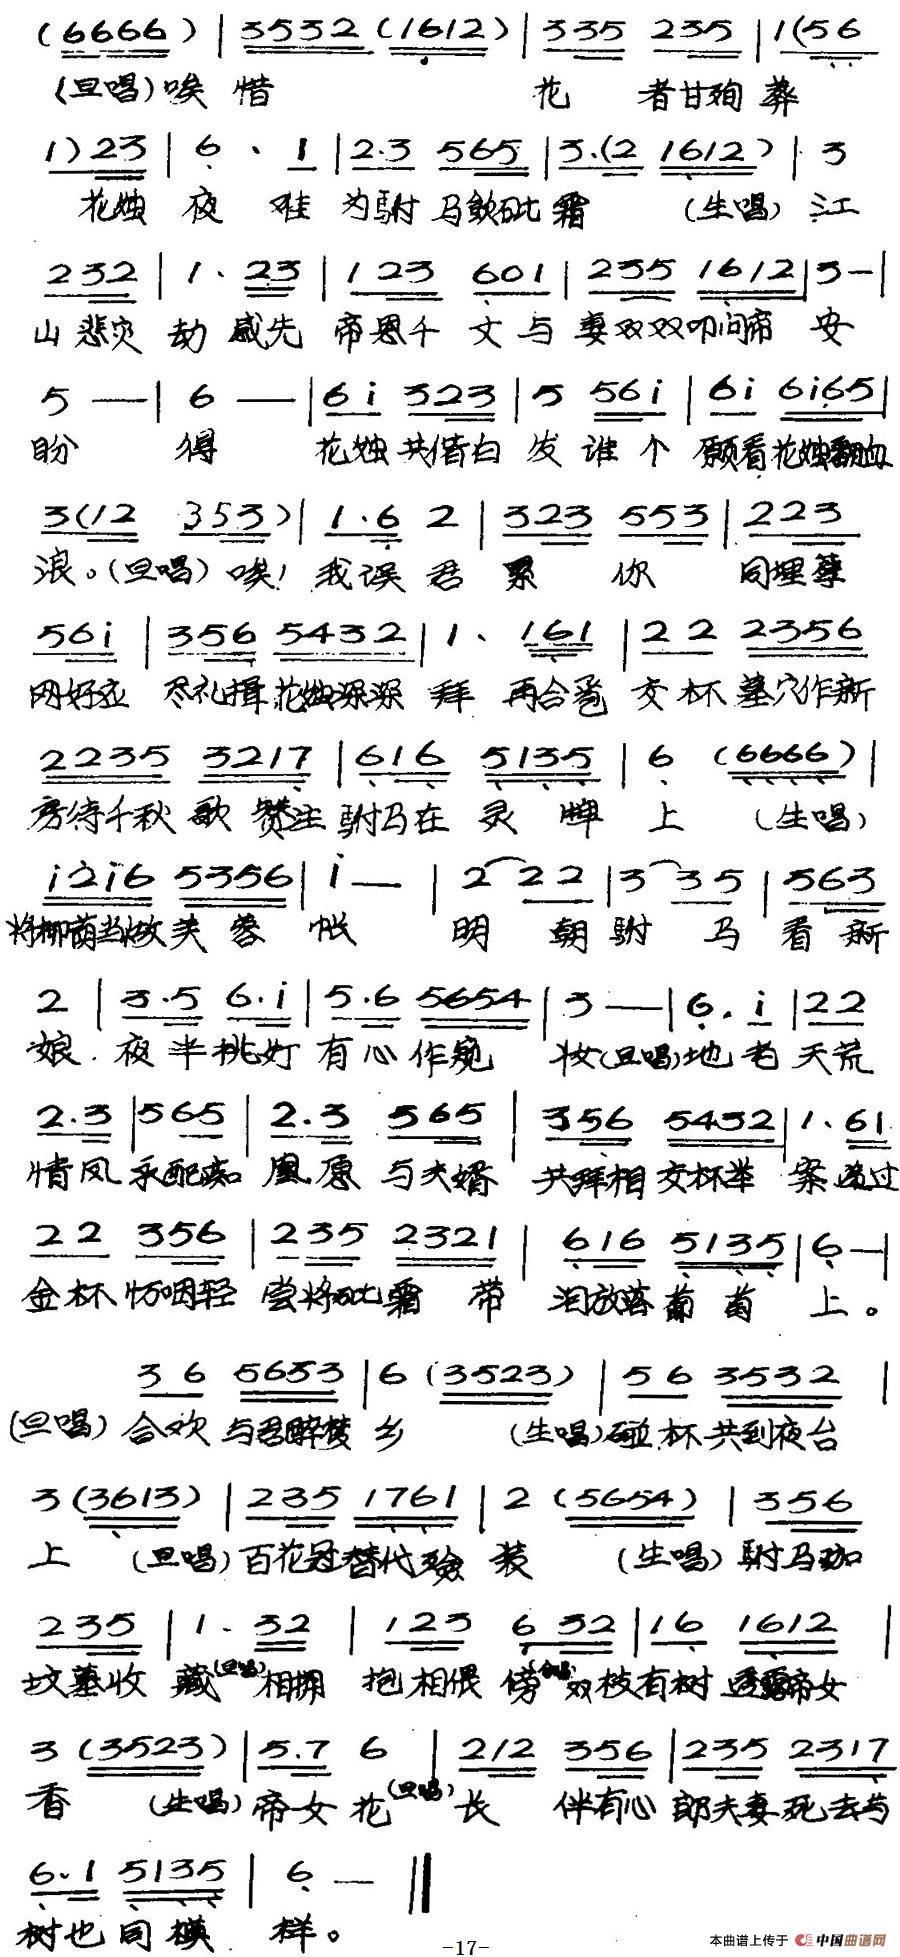 (6666) | 3532 (1612) | 335 235 | 1(56
(旦唱)唉 惜 花 者甘殉葬
1) 23 | 6 . 1 | 2.3 565 | 3.(2 1612) | 3
花烛 夜 难 为驸 马饮砒 霜 (生唱) 江
232 | 1 . 23 | 123 601 | 235 1612 | 3 - |
山 悲灾 劫 感先 帝恩千 丈 与 妻双双叩问帝 安
5 — | 6 — | 6i 323 | 5 56i | 6i 6i65 |
盼 得 花烛共偕白 发 谁 个 愿看花烛翻血
3(12 353) | 1.6 2 | 323 553 | 223
浪。(旦唱) 唉! 我误 君 累 你 同埋孽
56i | 356 5432 | 1 . 161 | 22 2356
网好应 尽礼揖花烛深深 拜 再合卺 交 杯 墓穴作新
2235 3217 | 616 5135 | 6 (6666) |
房待千秋 歌 赞注驸马在 灵 牌 上 (生唱)
i2i6 5356 | i — | 2 22 | 3 35 | 563
将柳荫当做芙 蓉 帐 明 朝 驸 马 看 新
2 | 3.5 6.i | 5.6 5654 | 3 — | 6.i | 22
娘 夜半挑灯 有心作窥 妆(旦唱)地 老 天荒
2.3 | 565 | 2.3 565 | 356 5432 | 1.61
情凤 永配痴 凰 愿 与夫婿 共拜相交杯举 案 递过
22 356 | 235 2321 | 616 5135 | 6 — |
金杯 怀咽轻 尝将砒霜 带 泪放落葡 萄 上。
36 5653 | 6 (3523) | 56 3532 |
(旦唱) 合欢 与君醉梦 乡 (生唱)碰杯共到夜台
3 (3613) | 235 1761 | 2 (5654) | 356
上 (旦唱) 百花冠替代殓 装 (生唱) 驸马珈
235 | 1 . 32 | 123 632 | 16 1612 |
坟墓收 藏(旦唱)相拥 抱相偎 傍 双枝有树 透露帝女
3 (3523) | 5.7 6 | 212 356 | 235 2317
香 (生唱) 帝女 花(旦唱)长 伴有心 郎夫妻死去与
6.1 5135 | 6 — ‖
树也 同 模 样。
-17-
本曲谱上传于 中国曲谱网